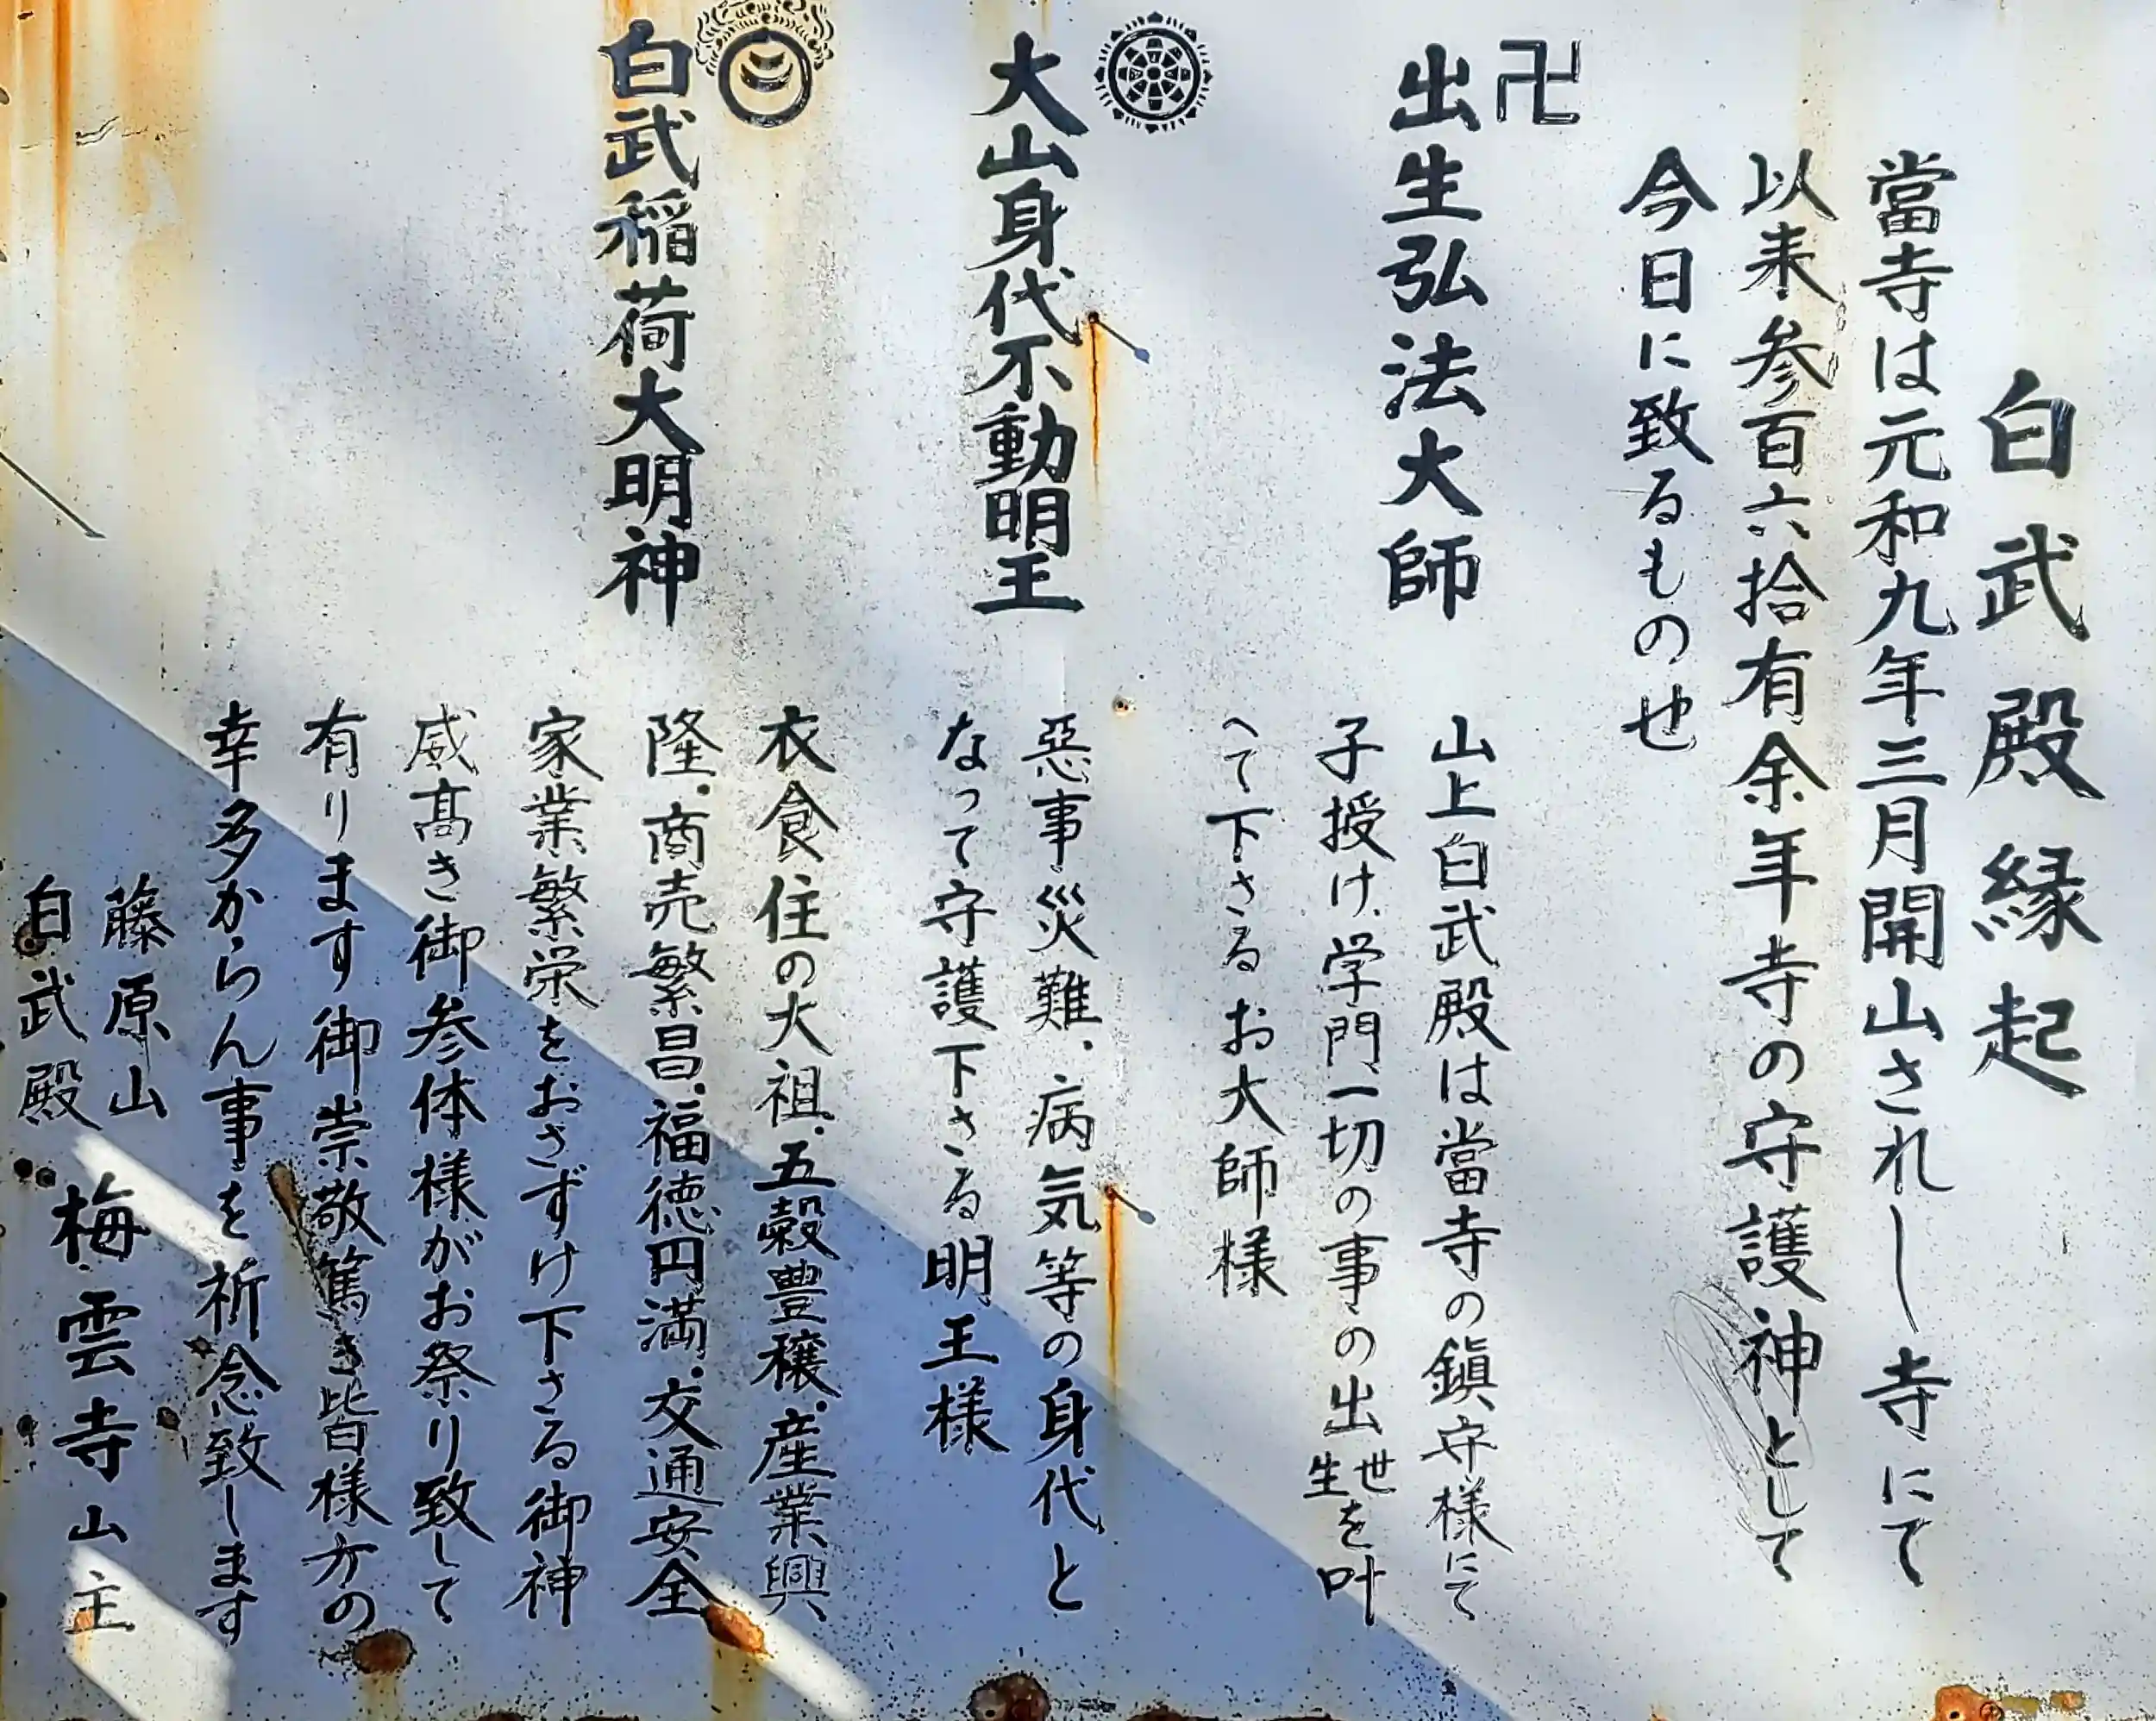 白武殿縁起
當寺は元和九年三月開山されし寺にて
以来参百六拾有余年寺の守護神として
今日に致るもの也
卍
出生弘法大師
山上白武殿は當寺の鎭守様にて
子授け、学門一切の事の出世生を叶
へて下さるお大師様
大山身代不動明王
惡事災難、病気等の身代と
なって守護下さる明王様
白武稲荷大明神
衣食住の大祖、五穀豊穣、産業興
隆、商売繁昌、福徳円満、交通安全
家業繁栄をおさずけ下さる御神
威髙き御参体様がお祭り致して
有ります御崇敬篤き皆様方の
幸多からん事を祈念致します
藤原山
白武殿
梅雲寺山主